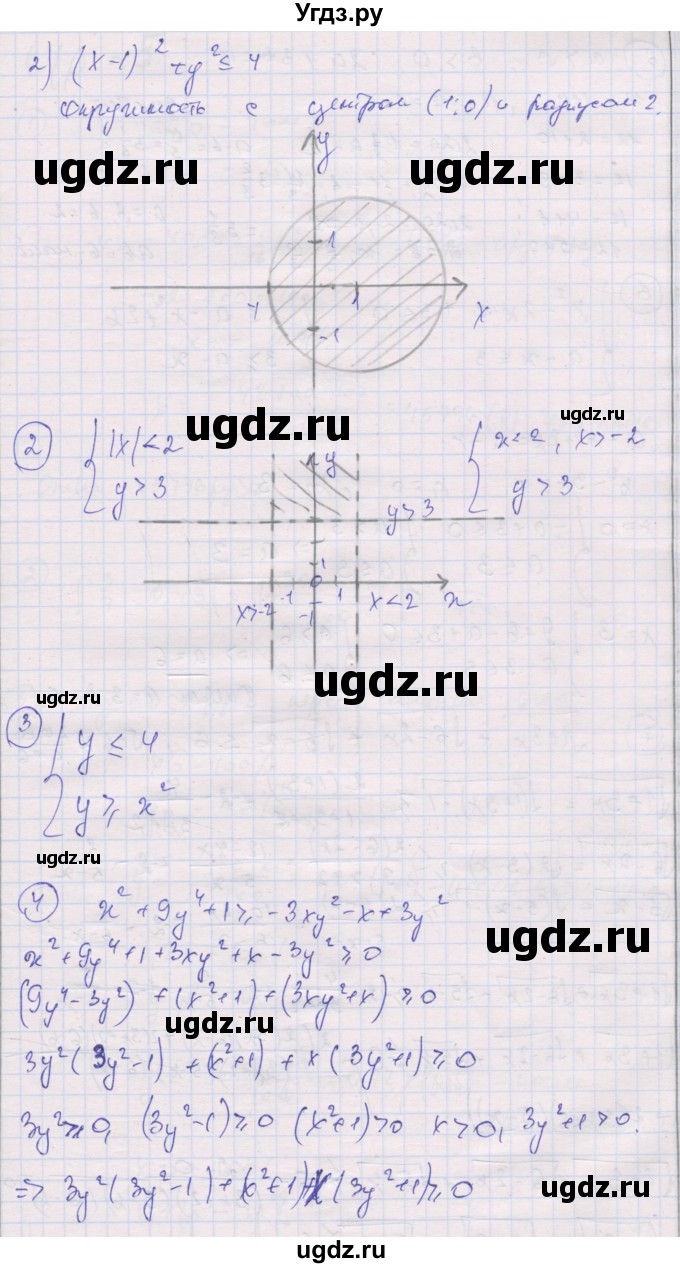 Угдз.ру
2) (x-1)² + y² ≤ 4
окружность с центром (1;0) и радиусом 2.
ugdz.ru ugdz.ru
y
1
-1 1 x
-1
ugdz.ru
ugdz.ru
2 { |x| < 2 { x < 2, x > -2
y > 3 y > 3
y
y > 3
1
x > -2 -1 0 1 x < 2 x
-1
ugdz.ru
ugdz.ru
3 { y ≤ 4
y ≥ x²
ugdz.ru
4 x² + 9y⁴ + 1 ≥ -3xy² - x + 3y²
x² + 9y⁴ + 1 + 3xy² + x - 3y² ≥ 0
ugdz.ru
(9y⁴ - 3y²) + (x² + 1) + (3xy² + x) ≥ 0
ugdz.ru
3y² (3y² - 1) + (x² + 1) + x (3y² + 1) ≥ 0
3y² ≥ 0, (3y² - 1) ≥ 0 (x² + 1) > 0 x > 0, 3y² + 1 > 0.
⇒ 3y² (3y² - 1) + (x² + 1) + x (3y² + 1) ≥ 0
ugdz.ru
ugdz.ru